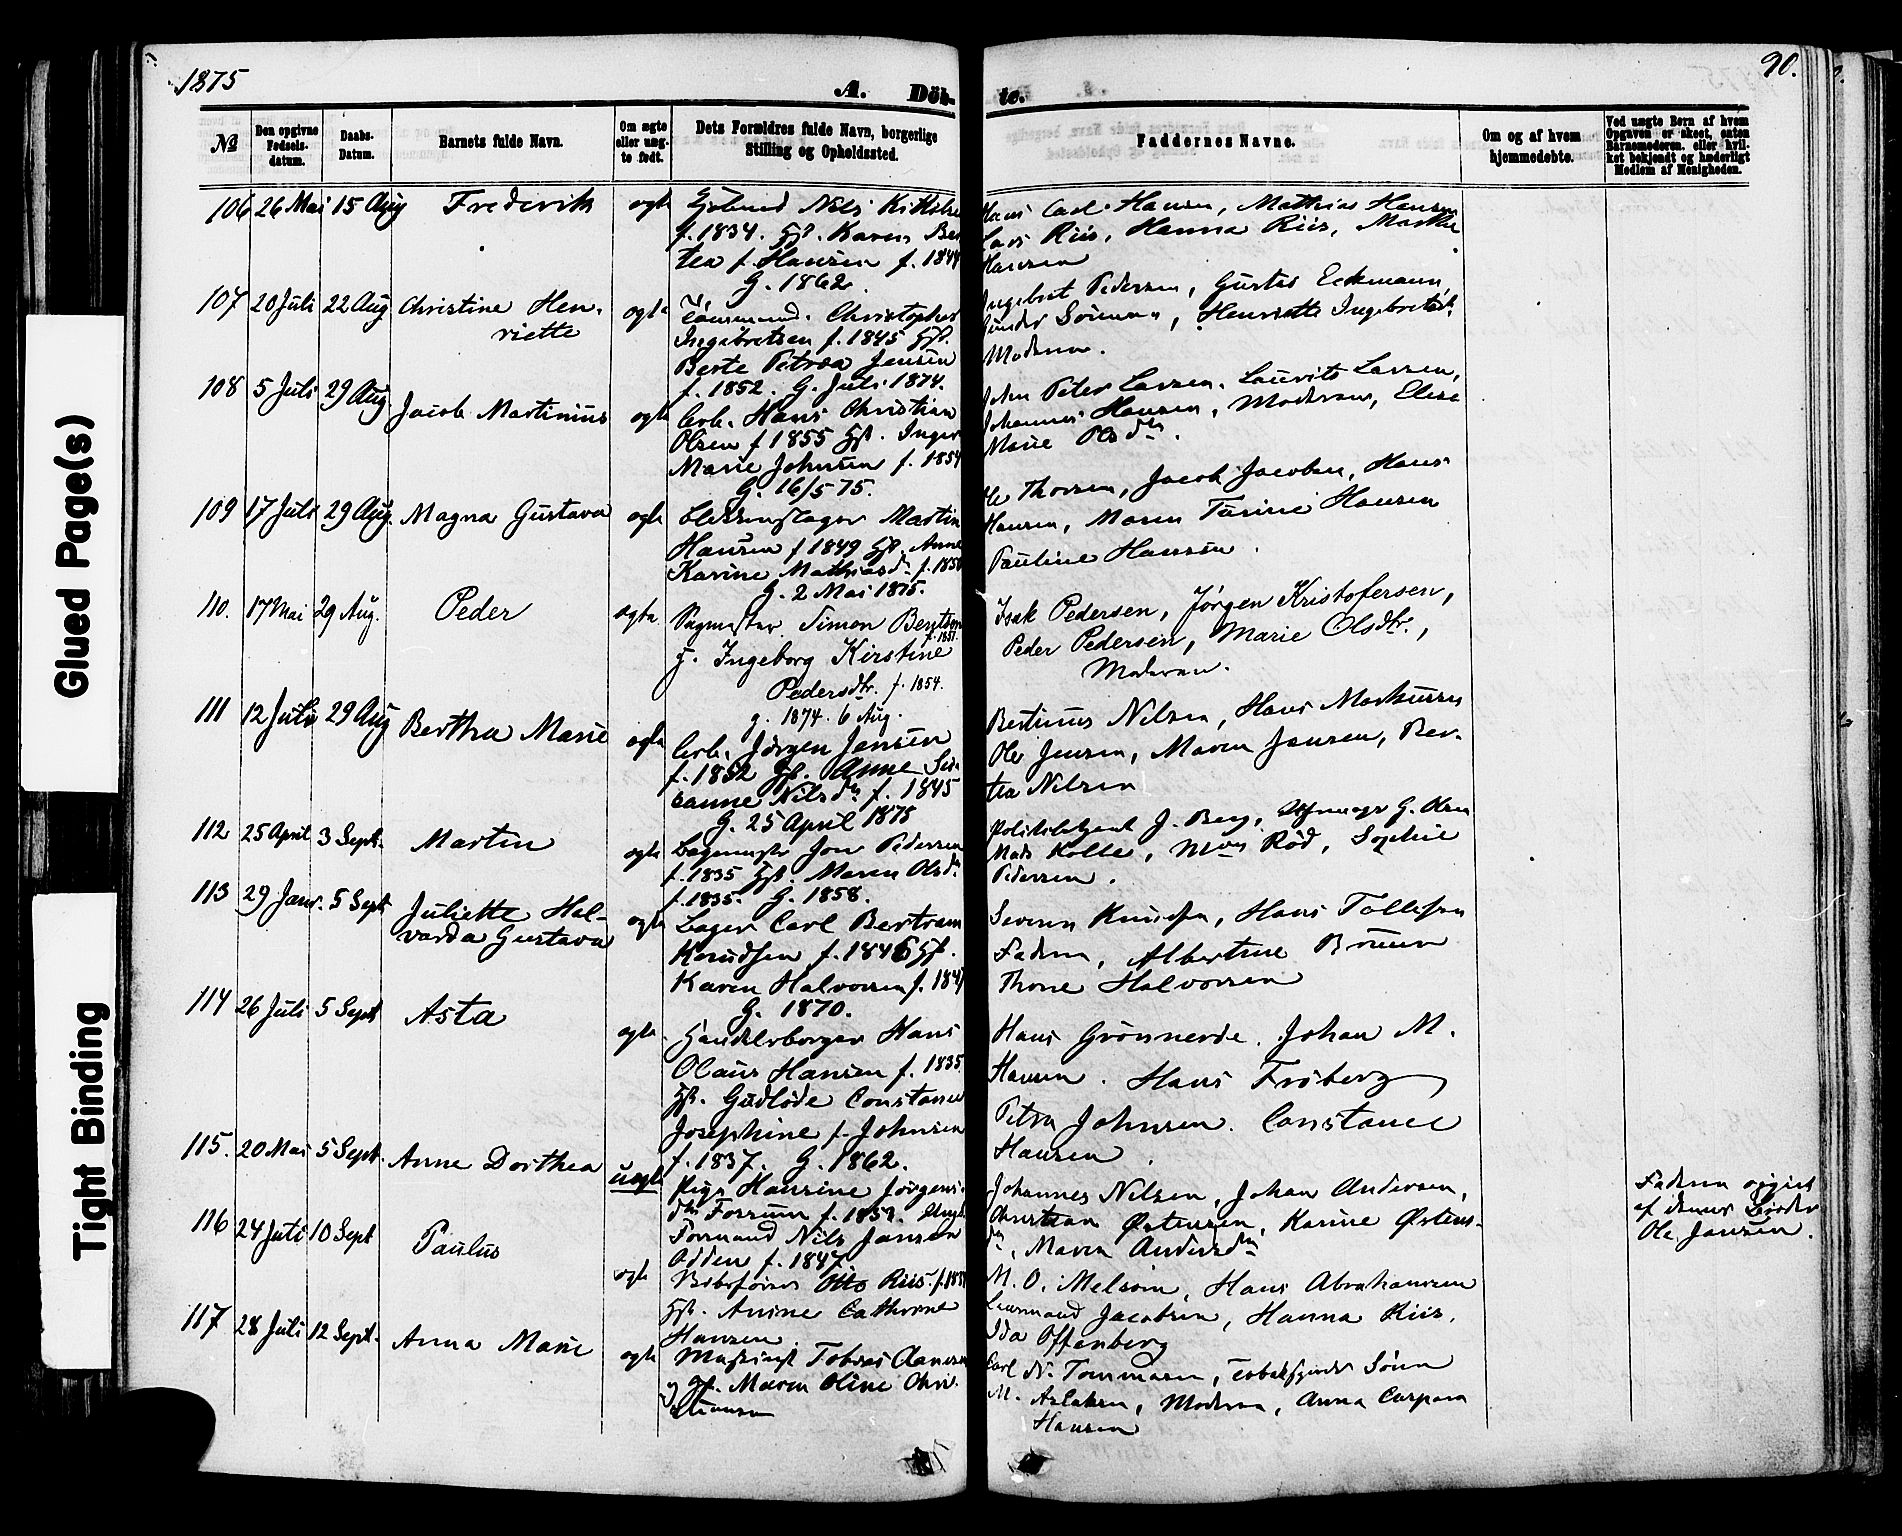 1875
A. Döb-
te.
90.
№
Den opgivne Fødsels-datum.
Daabs-Datum.
Barnets fulde Navn.
Om ægte eller uæg-te født.
Dets Forældres fulde Navn, borgerlige Stilling og Opholdssted.
Faddernes Navne.
Om og af hvem hjemmedøbte.
Ved uægte Børn af hvem Opgaven er skeet, enten Barnemoderen eller hvil-ket bekjendt og hæderligt Medlem af Menigheden.
106 26 Mai 15 Aug Frederik ægte
Nils
f. 1834. Karen Ber
tea f. Hansen f. 1844
G. 1862.
Hans Carl Hansen, Mathias Hansen
Lars Riis, Hanna Riis, Marthe
Hansen
107 20 Juli 22 Aug Christine Hen-
riette
ægte
Tømmermand. Christopher
Ingebretsen f. 1845
Berte Petrea Jensen
f. 1852. G. Juli 1874.
Ingebret Pedersen, Gustav Eckmann,
Gunder Sørensen, Henriette Ingebretsd.
Moderen.
108 5 Juli 29 Aug. Jacob Martinius ægte
Arb. Hans Christian
Olsen f 1855 Inger
Marie Johnsen f. 1854
G. 16/5 75.
John Peter Larsen. Laurits Larsen,
Johannes Hansen, Moderen, Elise
Marie Olsdtr.
109 17 Juli 29 Aug. Magna Gustava ægte
Blikkenslager Martin
Hansen f 1849 Anne
Karine Mathiasd. f. 1850
G. 2 Mai 1875.
Ole Thorsen, Jacob Jacobsen, Hans
Hansen, Maren Hansen
Pauline Hansen.
110. 17 Mai 29 Aug. Peder ægte
Sagmester Simon Bentsen
f. 1851.
g. Ingeborg Kirstine
Pedersdtr. f. 1854.
g. 1874. 6 Aug.
Isak Pedersen, Jørgen Kristofersen,
Peder Pedersen, Marie Olsdtr.,
Moderen.
111 12 Juli 29 Aug Bertha Marie ægte
Arb. Jørgen Jensen
f. 1852 Anne Su-
sanne Nilsd. f. 1845
G. 25 April 1875
Bertinus Nilsen, Hans Markussen
Ole Jensen, Maren Jensen, Ber-
tea Nilsen
112 25 April 3 Sept. Martin ægte
Bagemester Jon Pedersen
f. 1835 Maren Olsd.
f. 1835. G. 1858.
Politibetjent J. Berg, G. Olsen
Mads Kolle, Rød, Sophie
Pedersen.
113 29 Janr. 5 Sept Juliette Hal-
varda Gustava
ægte
Bager Carl Bertram
Knudsen f. 1846
Karen Halvorsen f. 184
G. 1870.
Severin Knudsen, Hans Tollefsen
Faderen, Albertine Bruun
Thone Halvorsen
114 26 Juli 5 Sept Asta ægte
Handelsborger Hans
Olaus Hansen f. 1835
Gudløde Constance
Josephine f. Johnsen
f. 1837. G. 1862.
Hans Grønnerde. Johan M.
Hansen. Hans Frøberg
Petra Johnsen. Constance
Hansen.
115. 20 Mai 5 Sept. Anne Dorthea uægte
Pige Hansine Jørgens-
dtr f. 1851. Ungk.
Tømmermand Nils Jansen
Odden f. 1847.
Johannes Nilsen, Johan Andersen,
Christian Østensen, Karine Østens-
dtr, Maren Andersdtr
Faderen opgivet
af dennes Broder
Ole Jansen.
116 24 Juli 10 Sept Paulus ægte
Otto Riis
Anine Cathrine
Hansen.
M. O. Melsom, Hans Abrahamsen
Jacobsen, Hanna Riis.
Ida Offenberg
117 28 Juli 12 Sept. Anna Marie ægte
Maskinist Tobias Aanesen
og Maren Oline Chri-
stiansen
Carl N. Tommasen, Sønn
M. Aslaksen, Moderen, Anna Caspara
Hansen
Glued Page(s)
Tight Binding